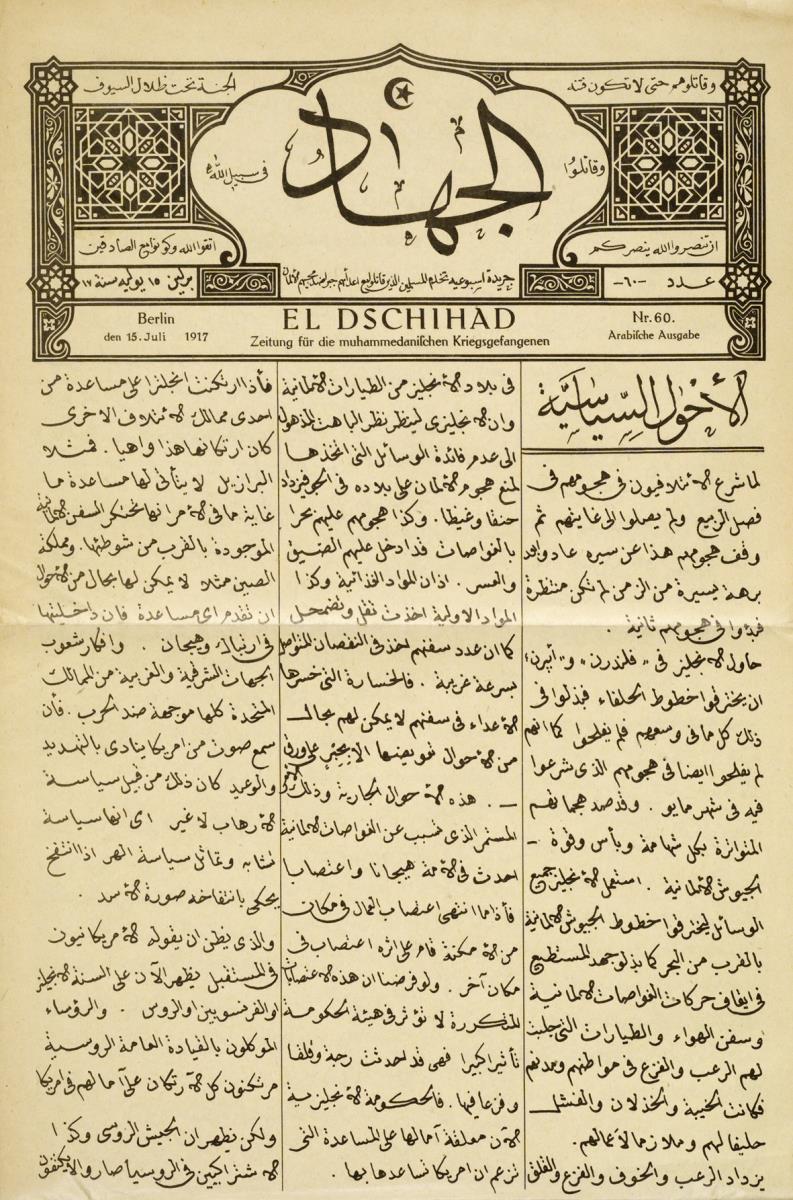 وقاتلوهم حتى لا تكون فتنه
الجنة تحت ظلال السيوف
وقاتلوا
الجهاد
فى سبيل الله
ان تنصروا الله ينصركم
اتقوا الله وكونوا مع الصادقين
عدد -٦٠-
جريدة اسبوعيه تخدم المسلمين
برلين ١٥ يوليه سنة ١٧
Nr. 60.
Arabiſche Ausgabe
EL DSCHIHAD
Zeitung für die muhammedaniſchen Kriegsgefangenen
Berlin
den 15. Juli 1917
الأحوال السياسية
لما شرع الائتلافيون فى هجومهم فى
فصل الربيع ولم يصلوا الى غايتهم ثم
وقف هجومهم هذا عن سيره عادوا بعد
برهة يسيرة من الزمن لم تكن منتظرة
فبدؤا فى هجومهم ثانية .
حاول الانجليز فى "فلندرن" و"أيبرن"
ان يخترقوا خطوط الحلفاء فبذلوا فى
ذلك كل ما فى وسعهم فلم يفلحوا كما انهم
لم يفلحوا ايضا فى هجومهم الذى شرعوا
فيه فى شهر مايو . وقد صد هجماتهم
المتواترة بكل شهامة وبأس وقوة -
الجيوش الالمانية . استعمل الانجليز جميع
الوسائل ليخترقوا خطوط الجيوش الالمانية
بالقرب من البحر كما بذلوا جهد المستطيع
فى ايقاف حركات الغواصات الالمانية
وسفن الهواء والطيارات التى جلبت
لهم الرعب والفزع فى مواطنهم ومدنهم
فكانت الخيبة والخذلان والفشل
حليفا لهم وملازما لأعمالهم .
يزداد الرعب والخوف والفزع والقلق
فى بلاد الانجليز من الطيارات الالمانية
وان الانجليزى لينظر نظر الباهت المذهول
الى عدم فائدة الوسائل التى اتخذها
لمنع هجوم الالمان على بلاده فى الجو فيزداد
حنقا وغيظا . وكذا هجومهم عليهم بحرا
بالغواصات قد ادخل عليهم الضيق
والعسر . اذ ان المواد الغذائية وكذا
المواد الاولية اخذت تقل وتضمحل
كما ان عدد سفنهم اخذ فى النقصان المتواصل
بسرعة غريبة . فالخسارة التى خسرها
الاعداء فى سفنهم لا يمكن لهم بحال
من الاحوال تعويضها
- . هذه الاحوال الجارية وذلك
المستمر الذى تسبب عن الغواصات الالمانية
احدث فى الامة هيجانا واعتصابا
فأذا ما انتهى اعتصاب العمال فى مكان
من الامكنة قام على اثره اعتصاب فى
مكان آخر . ولو فرضنا ان هذه الاعتصابات
المتكررة لا تؤثر فى هيئة الحكومة
تأثيرا كبيرا فهى قد احدثت رجة وقلقا
وفزعا فيها . فالحكومة الانجليزية
الآن معلقة آمالها على المساعدة التى
تزعم ان امريكا تساعدها بها .
فأذا ارتكنت انجلترا على مساعدة من
احدى ممالك الائتلاف الاخرى
كان ارتكانها هذا واهيا . فمثلا
البرازيل لا يتأتى لها مساعدة ما
غاية ما فى الامر انها تحتكر السفن الالمانية
الموجودة بالقرب من شوطئها . ومملكة
الصين مثلا لا يمكن لها بحال من الاحوال
ان تقدم اى مساعدة فان داخليتها
فى ارتباك وهيجان . وافكار شعوب
الجهات الشرقية والغربية من الممالك
المتحدة كلها موجهة ضد الحرب . فأن
سمع صوت من امريكا ينادى بالتهديد
والوعيد كان ذلك من قبيل سياسة
الارهاب لا غير اى انها سياسة
تشابه وتماثل سياسة الهر اذا انتفخ
يحكى بانتفاخه صورة الاسد .
والذى يظن ان يقوله الامريكانيون
فى المستقبل يظهر الآن على السنة الانجليز
او الفرنسويين او الروس . والرؤساء
الموكلون بالقيادة العامة الروسية
مرتكنون كل الارتكان على آمالهم فى امريكا
ولكن يظهر ان الجيش الروسى وكذا
الاشتراكيين فى الروسيا صاروا لا يكتفون